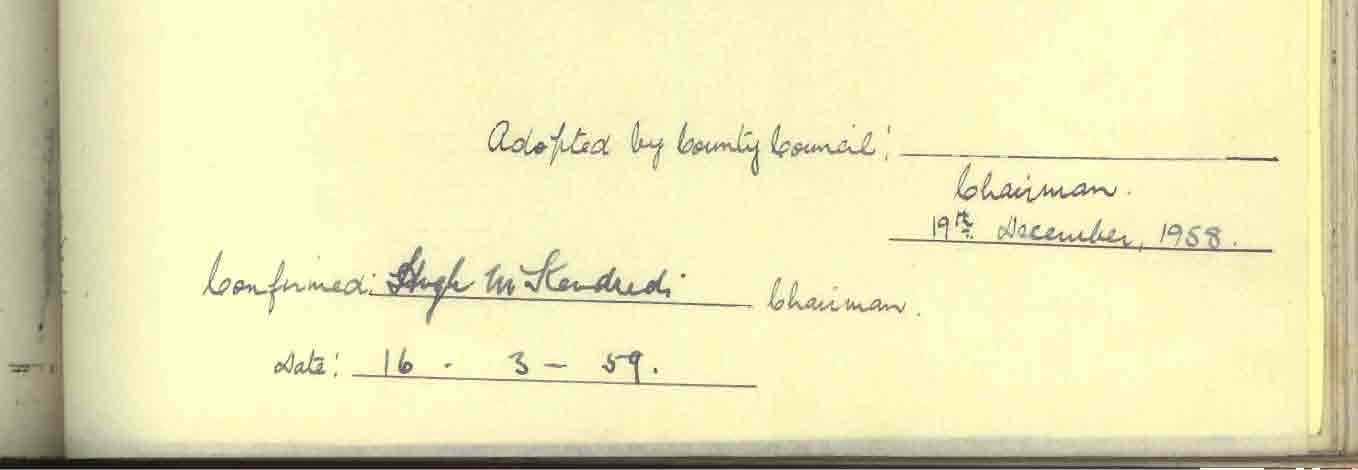 Adopted by County Council:
Chairman.
19th December, 1958.
Confirmed: Hugh McKendrick Chairman.
Date: 16 - 3 - 59.